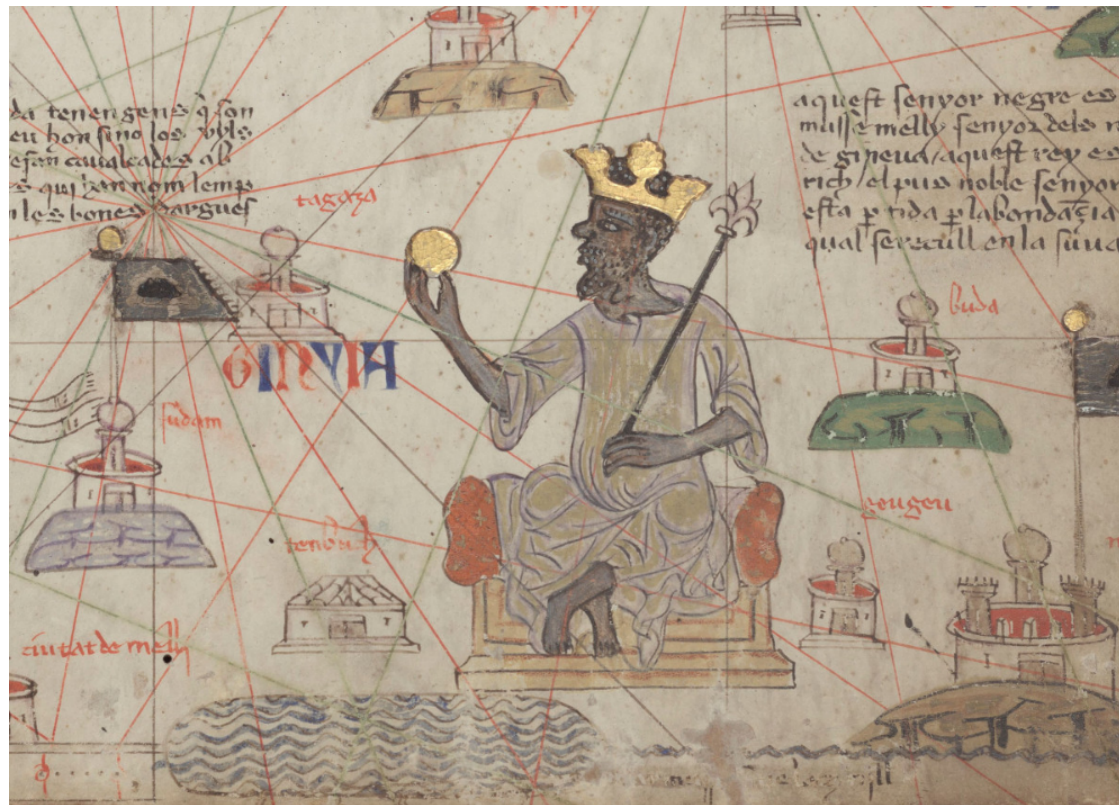 da tenen gens q̃ son
eu hon sino los vyls
efan caualcades ab
es qui han nom lemps
n les bones dargues
aquest senyor negre es
musse melly senyor dels n
de gineua aquest rey es
rich el pus noble senyor
esta ptida p labondazia
qual se recull en la suua
tagaza
buda
GINYIA
sudam
geugeu
tenbuch
ciutat de melly